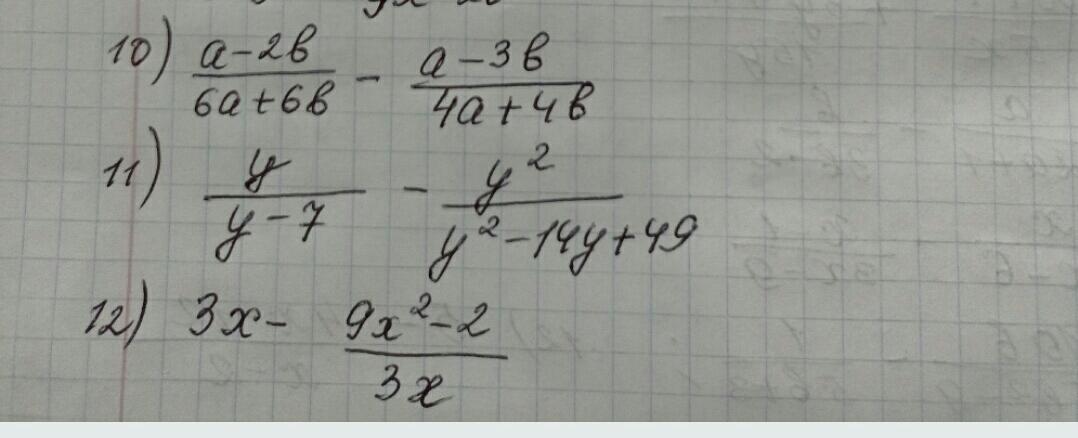 10) (a-2b)/(6a+6b) - (a-3b)/(4a+4b)
11) y/(y-7) - y²/(y²-14y+49)
12) 3x - (9x²-2)/(3x)